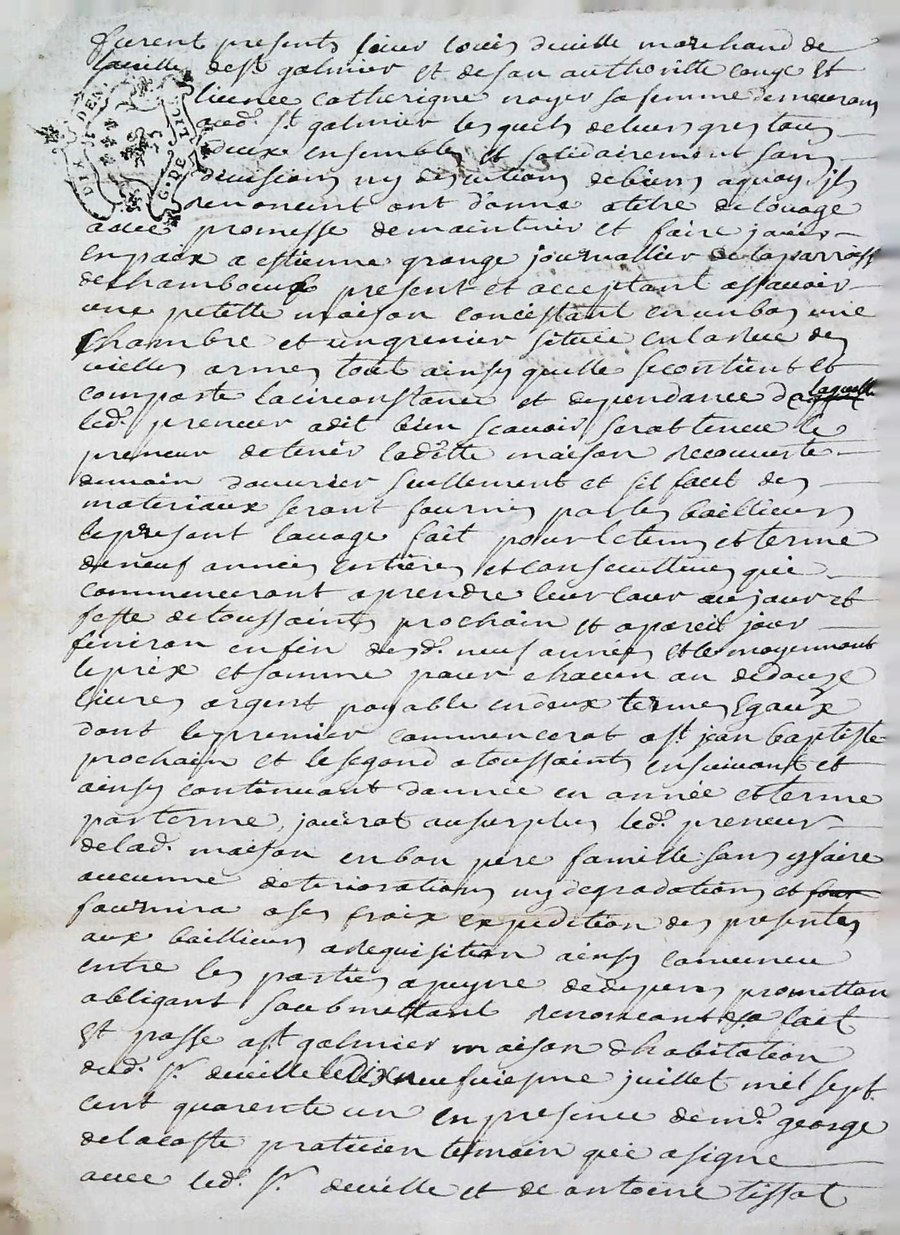 furent presents sieur louis deville marchand de
laville de st galmier et de son authoritte conge et
licence catherigne noyer sa femme demeurans
aud. st galmier lesquels de leurs gres tous
deux ensembles et solidairement sans
divisions ny discutions de biens a quoy ils
renoncent ont donne a titre de louage
avec promesse de maintenir et faire jouir
en paix a estienne grange journallier de la parroisse
de chamboeuf present et acceptant assavoir
une petitte maison concistant en un bas une
chambre et un grenier situee en la rue des
vielles armes tout ainsy quelle se contient et
comporte la circonstance et dependance de laquelle
led. preneur a dit bien scavoir serat tenue le
preneur de tenir laditte maison recouverte
de main douvrier seullement et sil faut des
materiaux seront fournis par les baillieurs
le present louage fait pour le tems et terme
de neuf annees entieres et consecutives qui
commenceront a prendre leur cour au jour et
feste de toussaints prochain et a pareil jour
finiron en fin desd. neuf annees et le moyennant
le prix et somme pour chacun an de douze
livres argent payable en deux termes egaux
dont le premier commencerat a st jean baptiste
prochain et le segond a toussaints ensuivant et
ainsy continuant dannee en annee et terme
par terme, jouirat au surplus led. preneur
de lad. maison en bon pere famille sans y faire
aucunne deteriorations ny degradations et
fournira a ses fraix expedition des presentes
aux baillieurs a requisition ainsy convenu
entre les parties a peyne de depens promettan
obligant soubmettant renonceant de fait
et passe a st galmier maison dhabitation
dud. sr deville le dix neufvieme juillet mil sept
cent quarente un en presence de me. george
delacoste praticien temoin qui a signe
avec led. sr deville et de antoine tissot
DIX DEN
G. DE